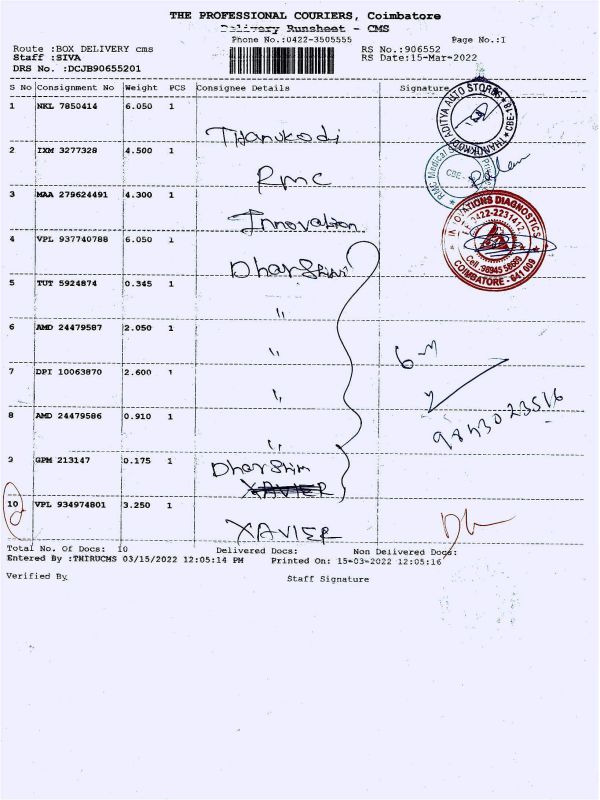 THE PROFESSIONAL COURIERS, Coimbatore
Delivery Runsheet - CMS
Phone No.:0422-3505555 Page No.:1
Route :BOX DELIVERY cms RS No.:906552
Staff :SIVA RS Date:15-Mar-2022
DRS No. :DCJB90655201
S No Consignment No Weight PCS Consignee Details Signature
1 NKL 7850414 6.050 1
Thanukodi
ADITYA AUTO STORES
2 IXM 3277328 4.500 1
RMC
RMC Medical
CBE
3 MAA 279624491 4.300 1
Innovation
INNOVATIONS DIAGNOSTICS
0422-2231412
Cell: 98945 58689
COIMBATORE - 641 009
4 VPL 937740788 6.050 1
Dharshini
5 TUT 5924874 0.345 1
"
6 AMD 24479587 2.050 1
"
7 DPI 10063870 2.600 1
"
8 AMD 24479586 0.910 1
"
9843023516
9 GPM 213147 0.175 1
Dharshini
XAVIER
10 VPL 934974801 3.250 1
XAVIER
Total No. Of Docs: 10 Delivered Docs: Non Delivered Docs:
Entered By :THIRUCMS 03/15/2022 12:05:14 PM Printed On: 15-03-2022 12:05:16
Verified By Staff Signature